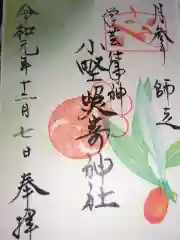 月参り 師走
小野照崎神社
令和元年十二月七日 奉拝